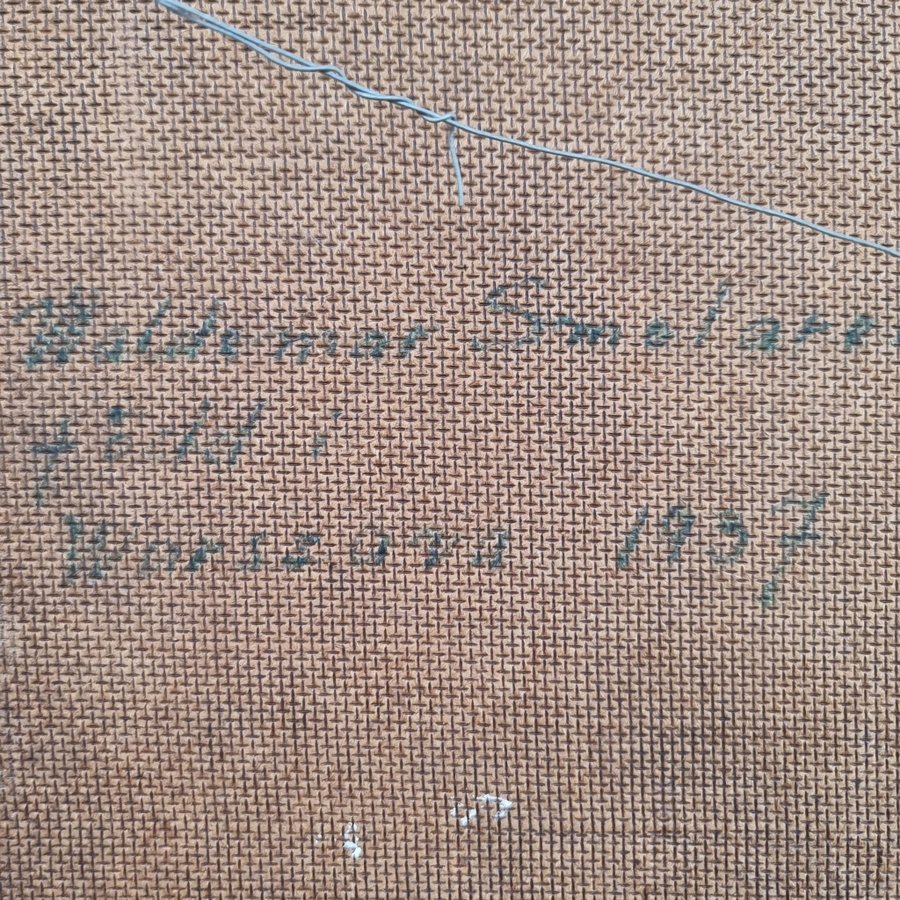 Waldemar Smolare
född i
Warszava 1937